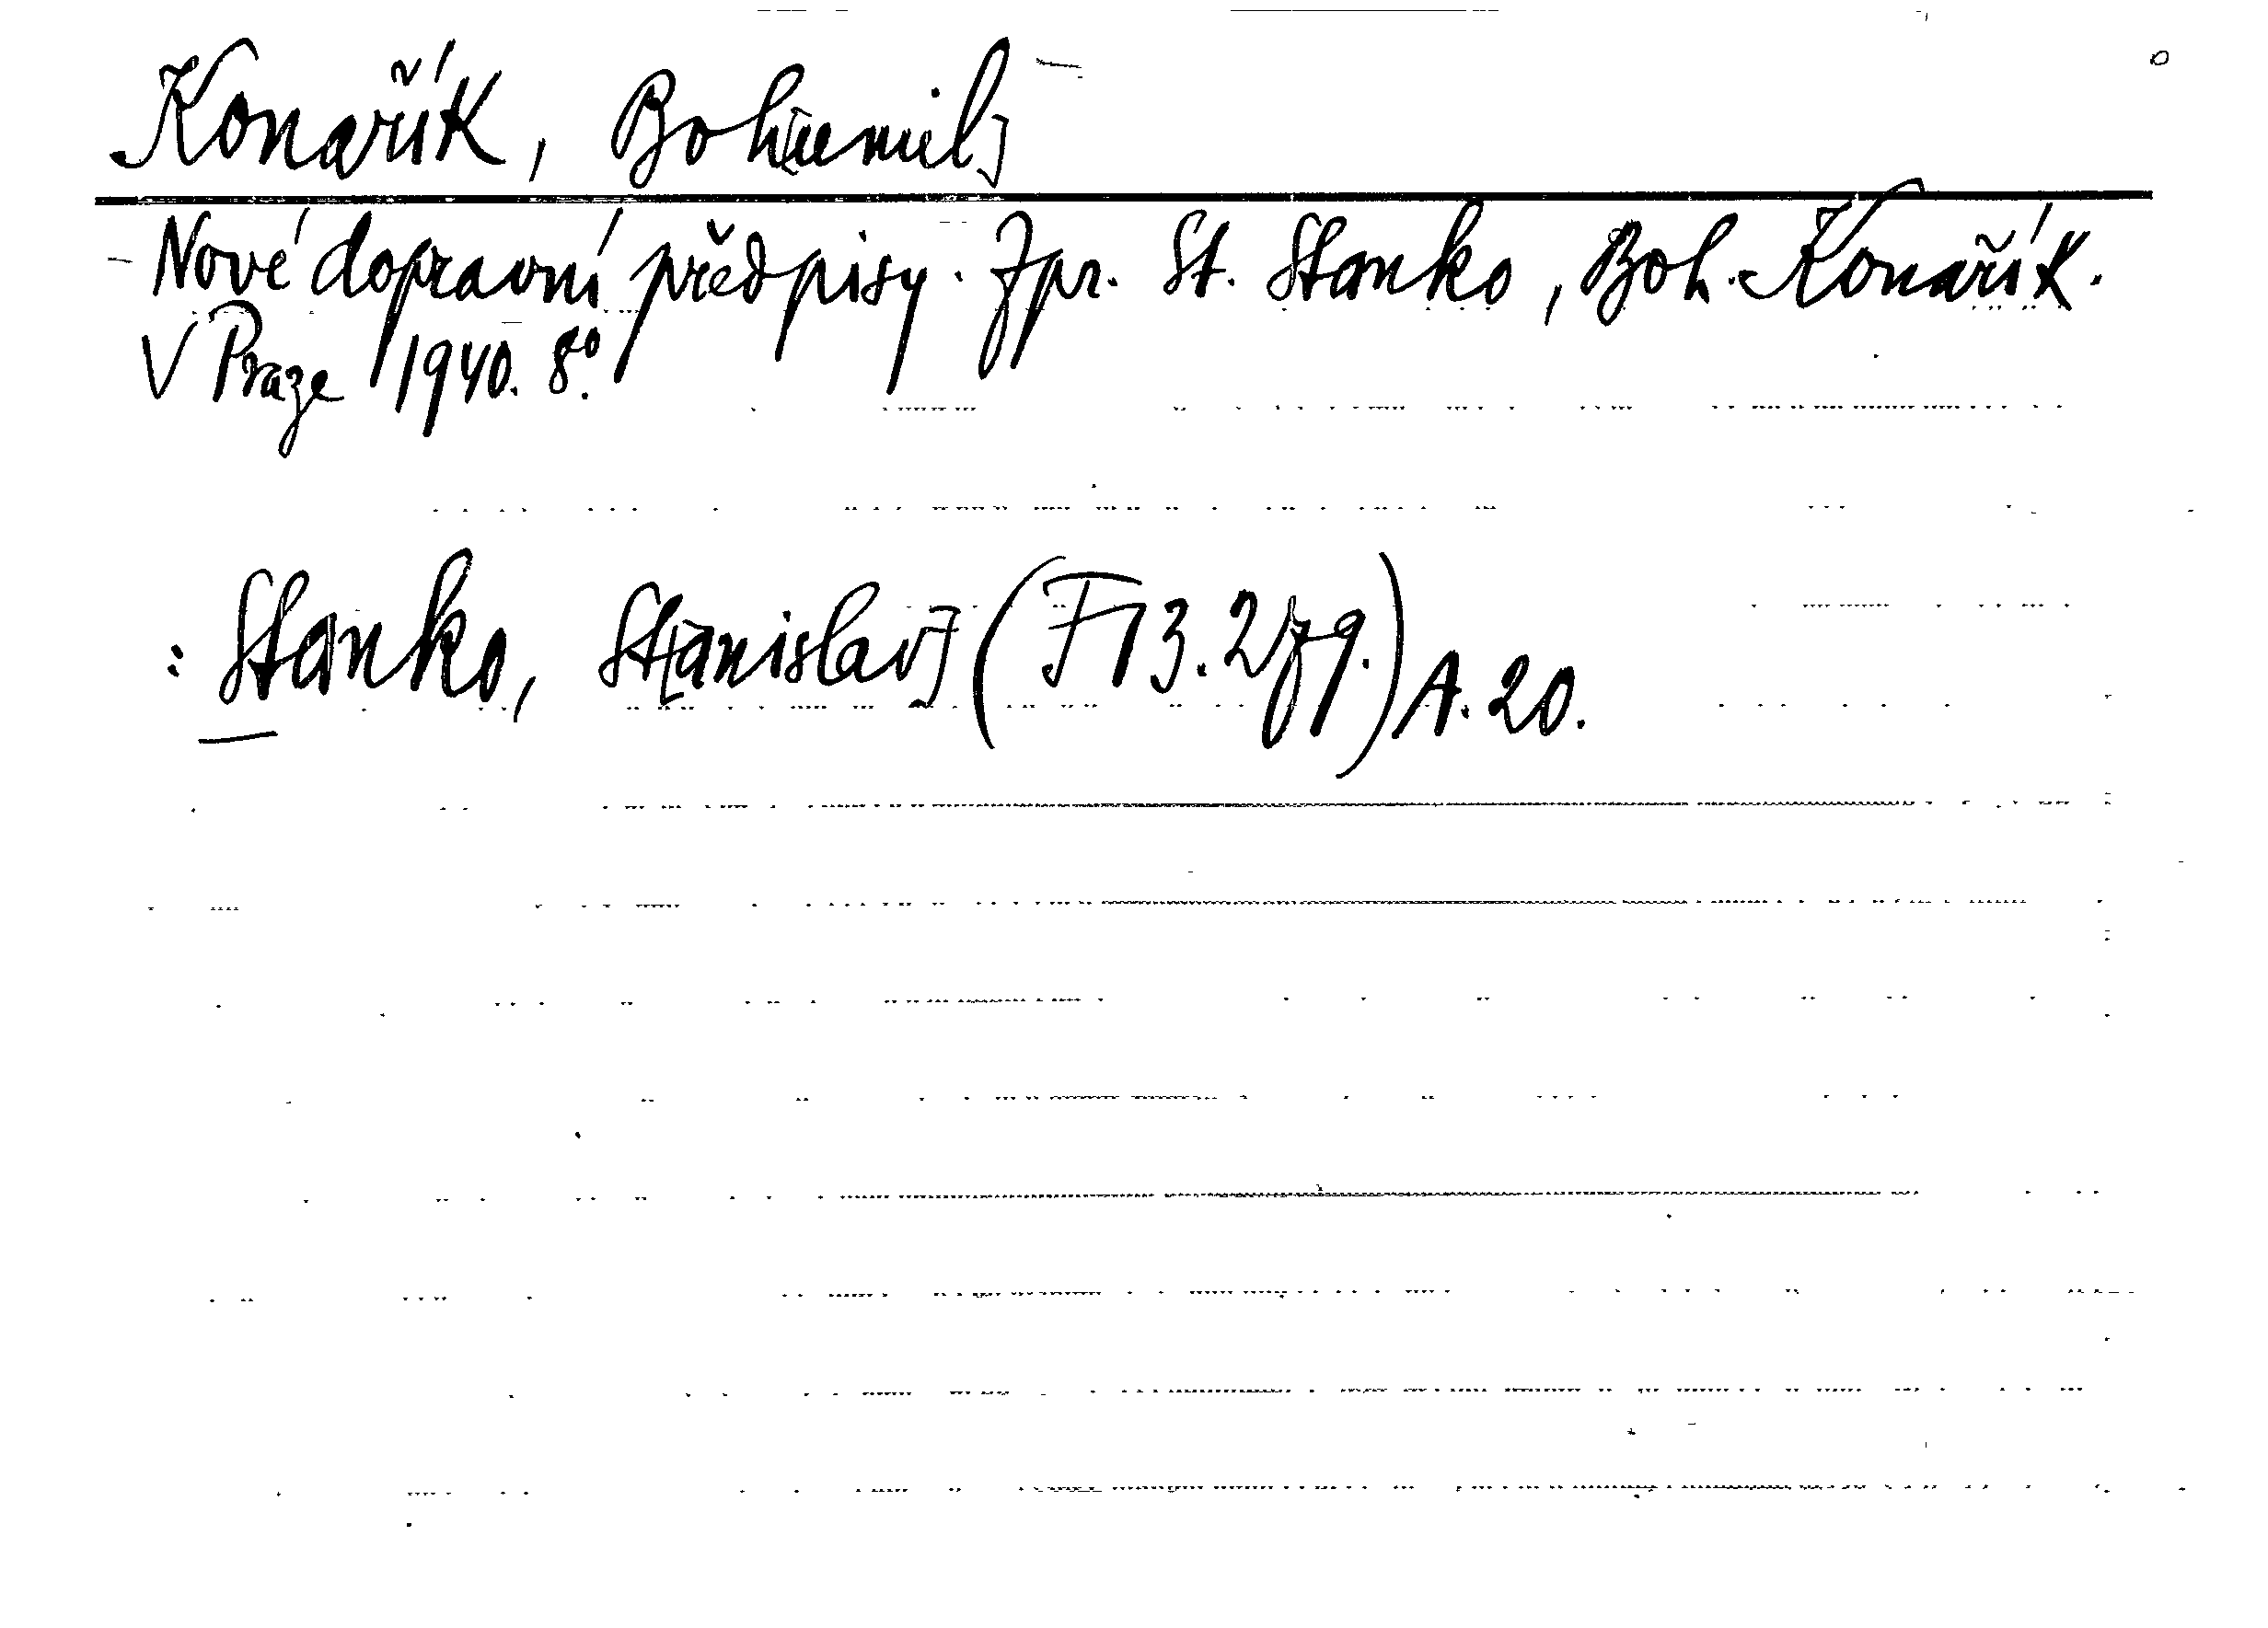 Konařík, Boh[umil]
Nové dopravní předpisy. Zpr. St. Stanko, Boh. Konařík.
V Praze 1940. 8°.
: Stanko, St[anislav] (F 13.279.) A. 20.